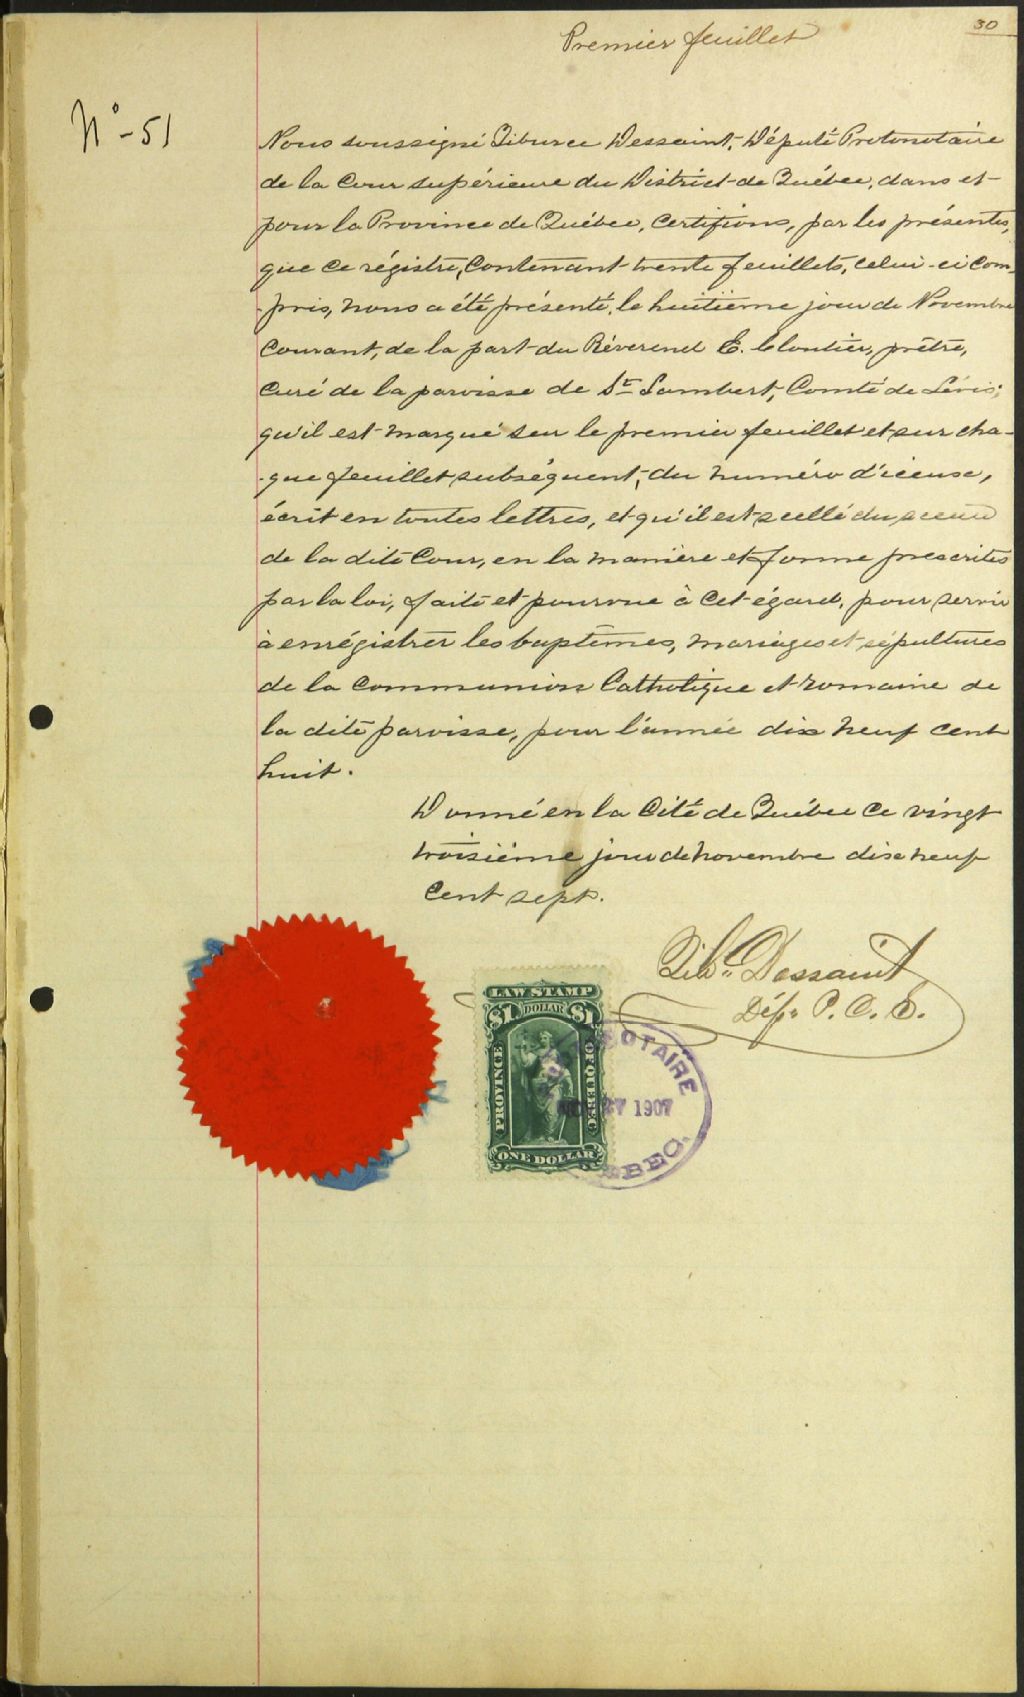 30
Premier feuillet
N° - 51
Nous soussigné Tiburce Dessaint, Député Protonotaire
de la Cour supérieure du District de Québec, dans et
pour la Province de Québec, Certifions, par les présentes,
que ce régistre, contenant trente feuillets, celui-ci com-
pris, nous a été présenté, le huitième jour de Novembre
Courant, de la part du Réverend E. Cloutier, prêtre,
Curé de la paroisse de St Lambert, Comté de Lévis;
qu'il est marqué sur le premier feuillet et sur cha-
-que feuillet subséquent, du numéro d'iceuse,
écrit en toutes lettres, et qu'il est scellé du sceau
de la dite Cour, en la manière et forme prescrites
par la loi, faite et pourvue à cet égard, pour servir
à enrégistrer les baptêmes, mariages et sépultures
de la Communion Catholique et romaine de
la dite paroisse, pour l'année dix neuf cent
huit.
Donné en la Cité de Québec ce vingt
troisième jour de novembre dix neuf
Cent sept.
Tib.. Dessaint
Dép. P. C. S.
LAW STAMP
$1 DOLLAR $1
PROVINCE OF QUEBEC
ONE DOLLAR
OTAIRE
27 1907
EBEC.